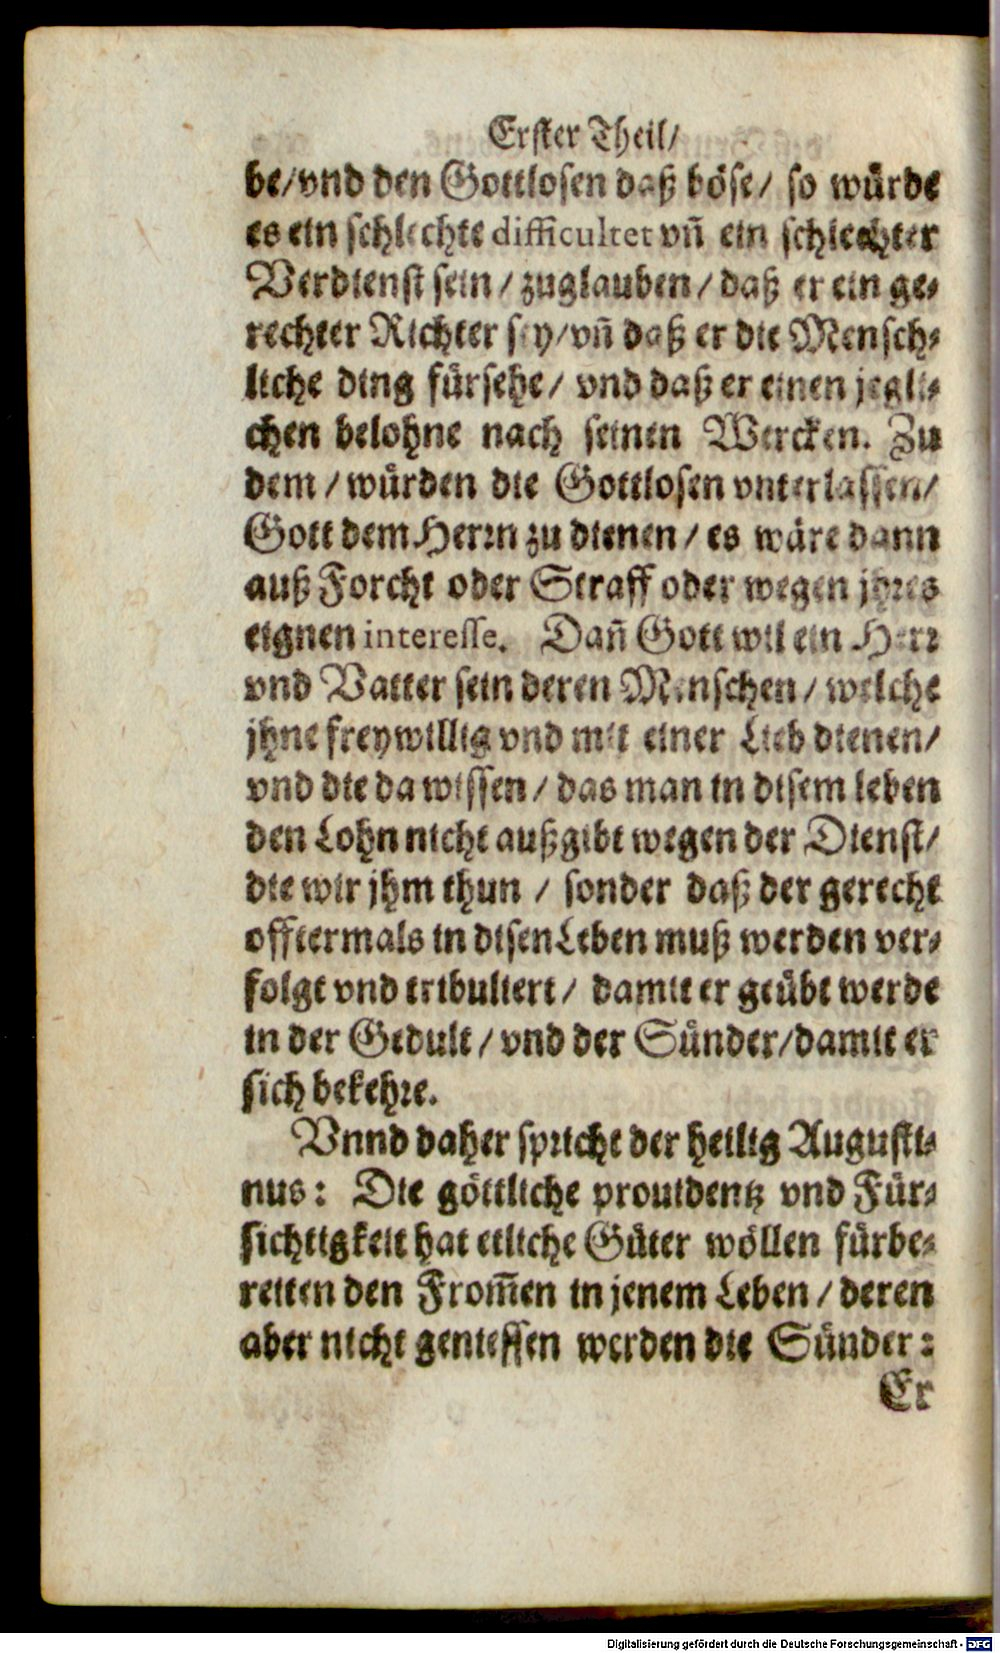 Erster Theil/
be/vnd den Gottlosen daß böse/ so würde
es ein schlechte difficultet vñ ein schlechter
Verdienst sein/ zuglauben/ daß er ein ge-
rechter Richter sey/ vñ daß er die Mensch-
liche ding fürsehe/ vnd daß er einen jegli-
chen belohne nach seinen Wercken. Zu
dem/ würden die Gottlosen vnterlassen/
Gott dem Herrn zu dienen/ es wäre dann
auß Forcht oder Straff oder wegen jhres
eignen interesse. Dañ Gott wil ein Herr
vnd Vatter sein deren Menschen/ welche
jhne freywillig vnd mit einer Lieb dienen/
vnd die da wissen/ das man in disem leben
den Lohn nicht außgibt wegen der Dienst/
die wir jhm thun/ sonder daß der gerecht
offtermals in disen Leben muß werden ver-
folgt vnd tribuliert/ damit er geübt werde
in der Gedult/ vnd der Sünder/damit er
sich bekehre.
Vnnd daher spricht der heilig Augusti-
nus: Die göttliche prouidentz vnd Für-
sichtigkeit hat etliche Güter wöllen fürbe-
reitten den From̃en in jenem Leben/ deren
aber nicht geniessen werden die Sünder:
Er
Digitalisierung gefördert durch die Deutsche Forschungsgemeinschaft - DFG